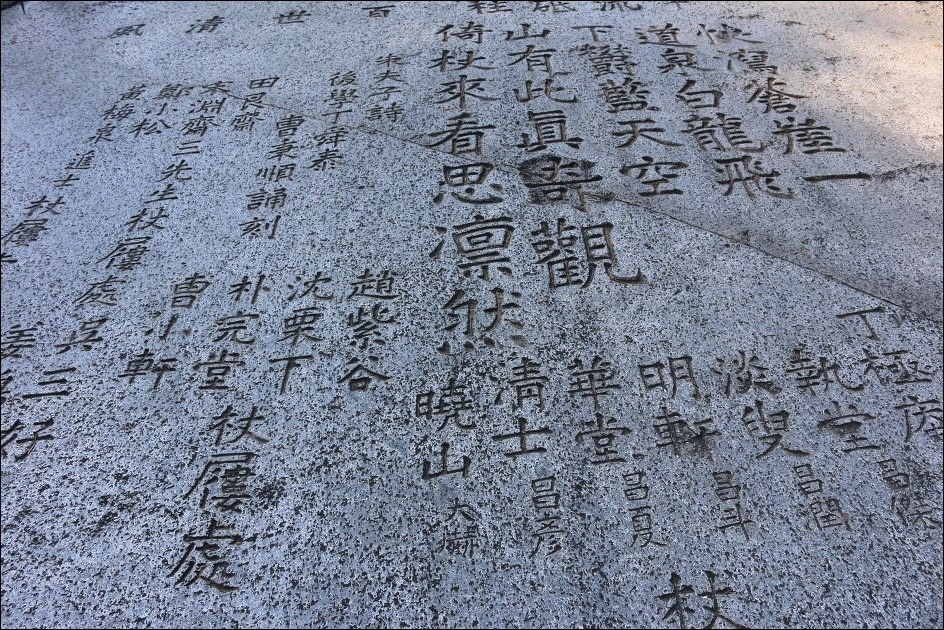 流
百世清風
快瀉蒼崖一
道泉白龍飛
下鬱藍天空
山有此眞奇觀
倚杖來看思凜然
朱夫子詩
曹秉順誦刻
田艮齋
宋淵齋三先生杖屨處
鄭小松
黃梅泉進士杖屨
丁極
執堂
淡叟昌潤
明軒昌斗
華堂昌夏
清士昌彦
曉山大赫
杖
趙紫谷
沈栗下
朴完堂杖屨處
曹小軒
吳三
姜